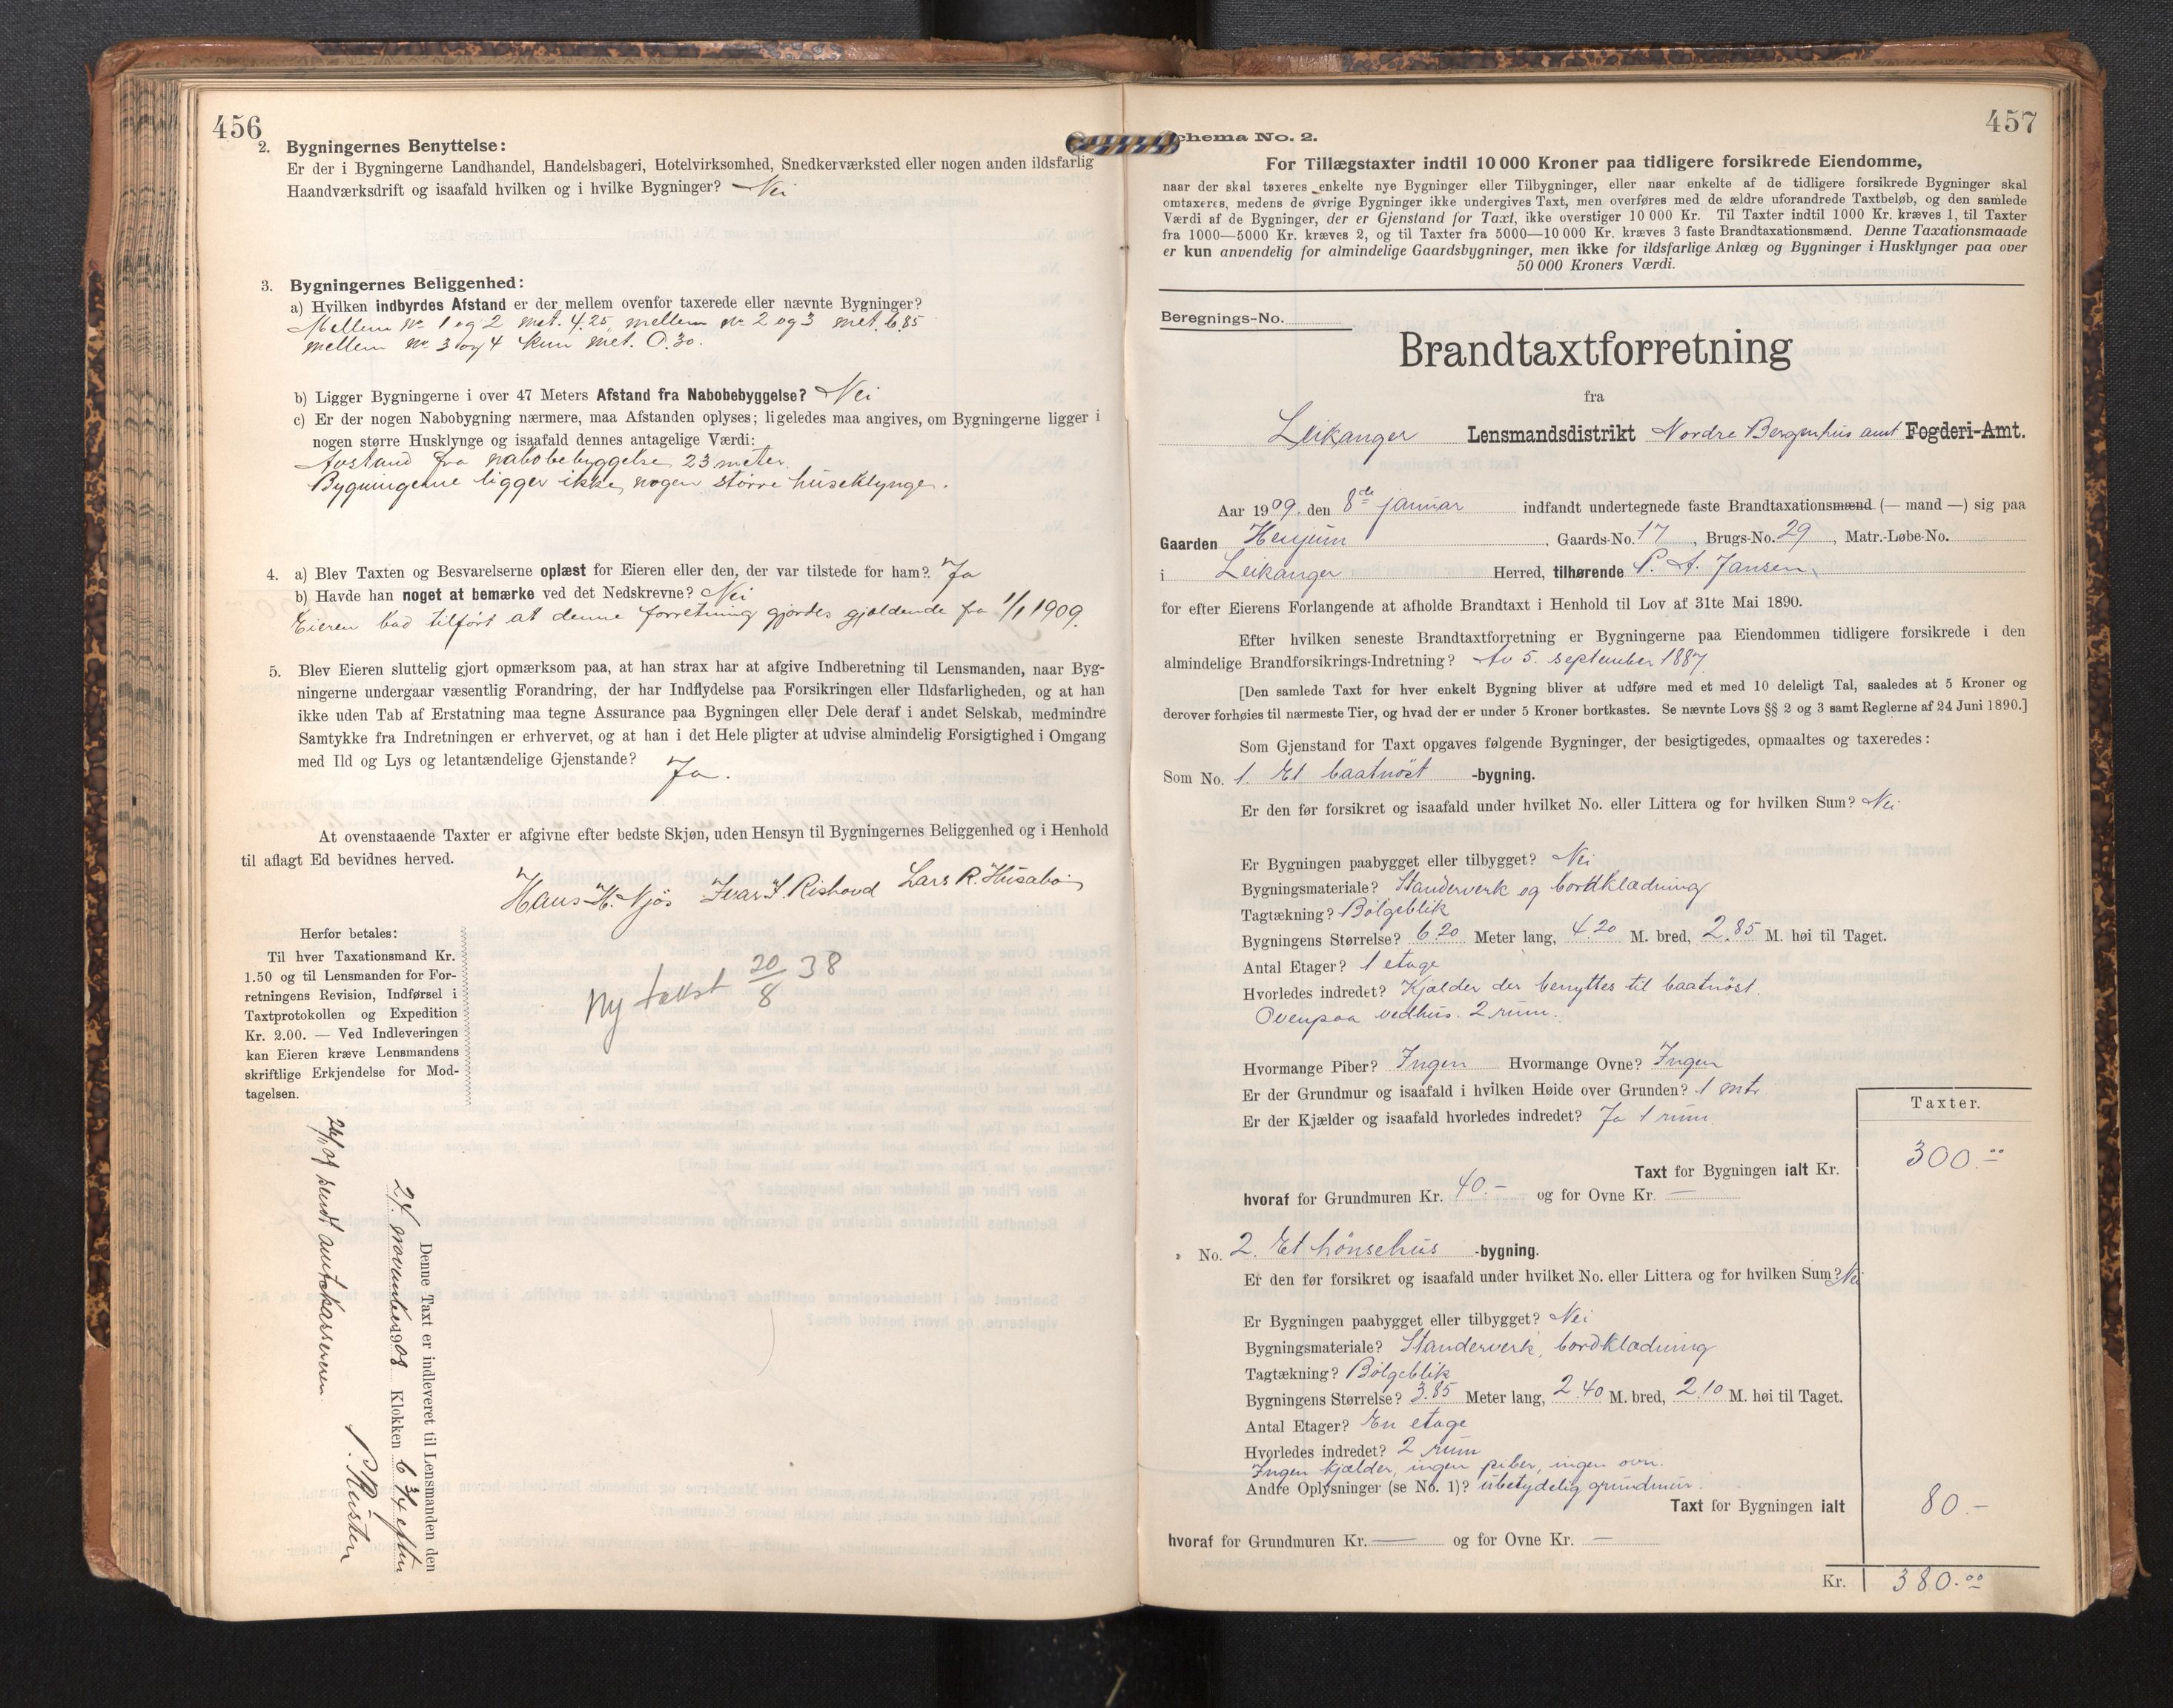 456
2. Bygningernes Benyttelse:
Er der i Bygningerne Landhandel, Handelsbageri, Hotelvirksomhed, Snedkerværksted eller nogen anden ildsfarlig
Haandværksdrift og isaafald hvilken og i hvilke Bygninger? Nei
3. Bygningernes Beliggenhed:
a) Hvilken indbyrdes Afstand er der mellem ovenfor taxerede eller nævnte Bygninger?
Mellem No 1 og 2 met. 4.25, mellem No 2 og 3 met. 6.85
mellem No 3 og 4 kun met. 0.30.
b) Ligger Bygningerne i over 47 Meters Afstand fra Nabobebyggelse? Nei
c) Er der nogen Nabobygning nærmere, maa Afstanden oplyses; ligeledes maa angives, om Bygningerne ligger i
nogen større Husklynge og isaafald dennes antagelige Værdi:
Avstand fra nabobebyggelse 23 meter.
Bygningerne ligger ikke i nogen större huseklynge.
4. a) Blev Taxten og Besvarelserne oplæst for Eieren eller den, der var tilstede for ham? Ja
b) Havde han noget at bemærke ved det Nedskrevne? Nei
Eieren bad tilført at denne forretning gjordes gjældende fra 1/1 1909.
5. Blev Eieren sluttelig gjort opmærksom paa, at han strax har at afgive Indberetning til Lensmanden, naar Byg-
ningerne undergaar væsentlig Forandring, der har Indflydelse paa Forsikringen eller Ildsfarligheden, og at han
ikke uden Tab af Erstatning maa tegne Assurance paa Bygningen eller Dele deraf i andet Selskab, medmindre
Samtykke fra Indretningen er erhvervet, og at han i det Hele pligter at udvise almindelig Forsigtighed i Omgang
med Ild og Lys og letantændelige Gjenstande? Ja.
At ovenstaaende Taxter er afgivne efter bedste Skjøn, uden Hensyn til Bygningernes Beliggenhed og i Henhold
til aflagt Ed bevidnes herved.
Hans H. Njøs Ivar I. Rishovd Lars R. Husabø
Herfor betales:
Til hver Taxationsmand Kr.
1.50 og til Lensmanden for For-
retningens Revision, Indførsel i
Taxtprotokollen og Expedition
Kr. 2.00. — Ved Indleveringen
kan Eieren kræve Lensmandens
skriftlige Erkjendelse for Mod-
tagelsen.
Ny takst 20/8 38
Denne Taxt er indleveret til Lensmanden den
24 november 1908 Klokken 6 3/4 eftm
sendt amtskassereren.
457
Schema No. 2.
For Tillægstaxter indtil 10 000 Kroner paa tidligere forsikrede Eiendomme,
naar der skal taxeres enkelte nye Bygninger eller Tilbygninger, eller naar enkelte af de tidligere forsikrede Bygninger skal
omtaxeres, medens de øvrige Bygninger ikke undergives Taxt, men overføres med de ældre uforandrede Taxtbeløb, og den samlede
Værdi af de Bygninger, der er Gjenstand for Taxt, ikke overstiger 10 000 Kr. Til Taxter indtil 1000 Kr. kræves 1, til Taxter
fra 1000—5000 Kr. kræves 2, og til Taxter fra 5000—10 000 Kr. kræves 3 faste Brandtaxationsmænd. Denne Taxationsmaade
er kun anvendelig for almindelige Gaardsbygninger, men ikke for ildsfarlige Anlæg og Bygninger i Husklynger paa over
50 000 Kroners Værdi.
Beregnings-No.
Brandtaxtforretning
fra
Leikanger Lensmandsdistrikt Nordre Bergenhus amt Fogderi-Amt.
Aar 1909. den 8de januar indfandt undertegnede faste Brandtaxationsmænd (— mand —) sig paa
Gaarden Henjum, Gaards-No. 17, Brugs-No. 29, Matr.-Løbe-No.
i Leikanger Herred, tilhørende P. A. Jansen,
for efter Eierens Forlangende at afholde Brandtaxt i Henhold til Lov af 31te Mai 1890.
Efter hvilken seneste Brandtaxtforretning er Bygningerne paa Eiendommen tidligere forsikrede i den
almindelige Brandforsikrings-Indretning? Av 5. september 1887
[Den samlede Taxt for hver enkelt Bygning bliver at udføre med et med 10 deleligt Tal, saaledes at 5 Kroner og
derover forhøies til nærmeste Tier, og hvad der er under 5 Kroner bortkastes. Se nævnte Lovs §§ 2 og 3 samt Reglerne af 24 Juni 1890.]
Som Gjenstand for Taxt opgaves følgende Bygninger, der besigtigedes, opmaaltes og taxeredes:
Som No. 1. Et baatnöst -bygning.
Er den før forsikret og isaafald under hvilket No. eller Littera og for hvilken Sum? Nei
Er Bygningen paabygget eller tilbygget? Nei
Bygningsmateriale? Standerverk og bordklædning
Tagtækning? Bölgeblik
Bygningens Størrelse? 6.20 Meter lang, 4.20 M. bred, 2.85 M. høi til Taget.
Antal Etager? 1 etage
Hvorledes indredet? Kjælder der benyttes til baatnöst.
Ovenpaa vedhus. 2 rum.
Hvormange Piber? Ingen Hvormange Ovne? Ingen
Er der Grundmur og isaafald i hvilken Høide over Grunden? 1 mtr.
Er der Kjælder og isaafald hvorledes indredet? Ja 1 rum.
Taxter.
Taxt for Bygningen ialt Kr. 300.00
hvoraf for Grundmuren Kr. 40.- og for Ovne Kr. —
" No. 2. Et hönsehus -bygning.
Er den før forsikret og isaafald under hvilket No. eller Littera og for hvilken Sum? Nei
Er Bygningen paabygget eller tilbygget? Nei
Bygningsmateriale? Standerverk, bordklædning
Tagtækning? Bölgeblik
Bygningens Størrelse? 3.85 Meter lang, 2.40 M. bred, 2.10 M. høi til Taget.
Antal Etager? En etage
Hvorledes indredet? 2 rum
Ingen kjælder, ingen piber, ingen ovn.
Andre Oplysninger (se No. 1)? ubetydelig grundmur.
Taxt for Bygningen ialt 80.-
hvoraf for Grundmuren Kr. — og for Ovne Kr. —
Kr. 380.00